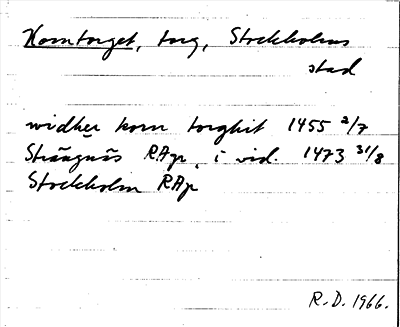 Korntorget, torg, Stockholms
stad
widher korn torghit 1455 2/7
Strängnäs RAp, i vid. 1473 31/8
Stockholm RAp
R.D. 1966.